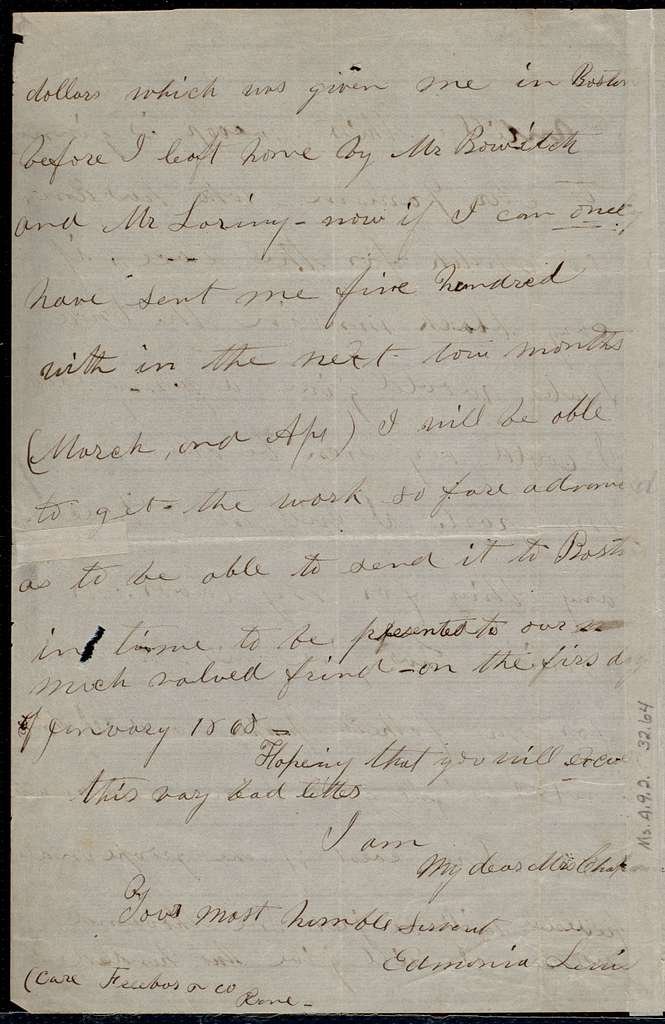 dollars which was given me in Boston
before I left home by Mr Bowditch
and Mr Loring - now if I can only
have sent me five hundred
with in the next tow months
(March, and Apl) I will be able
to get the work so fare advance
as to be able to send it to Bost
in time to be presented to our
much valued frind - on the firs day
of January 1868 =
Hopeing that you will
this vary bad letter
I am
My dear Mrs Chap
Your most humble Servent
Edmonia Lewis
(Care Freebor & co
Rome -
Ms. A.9.2. 32.64